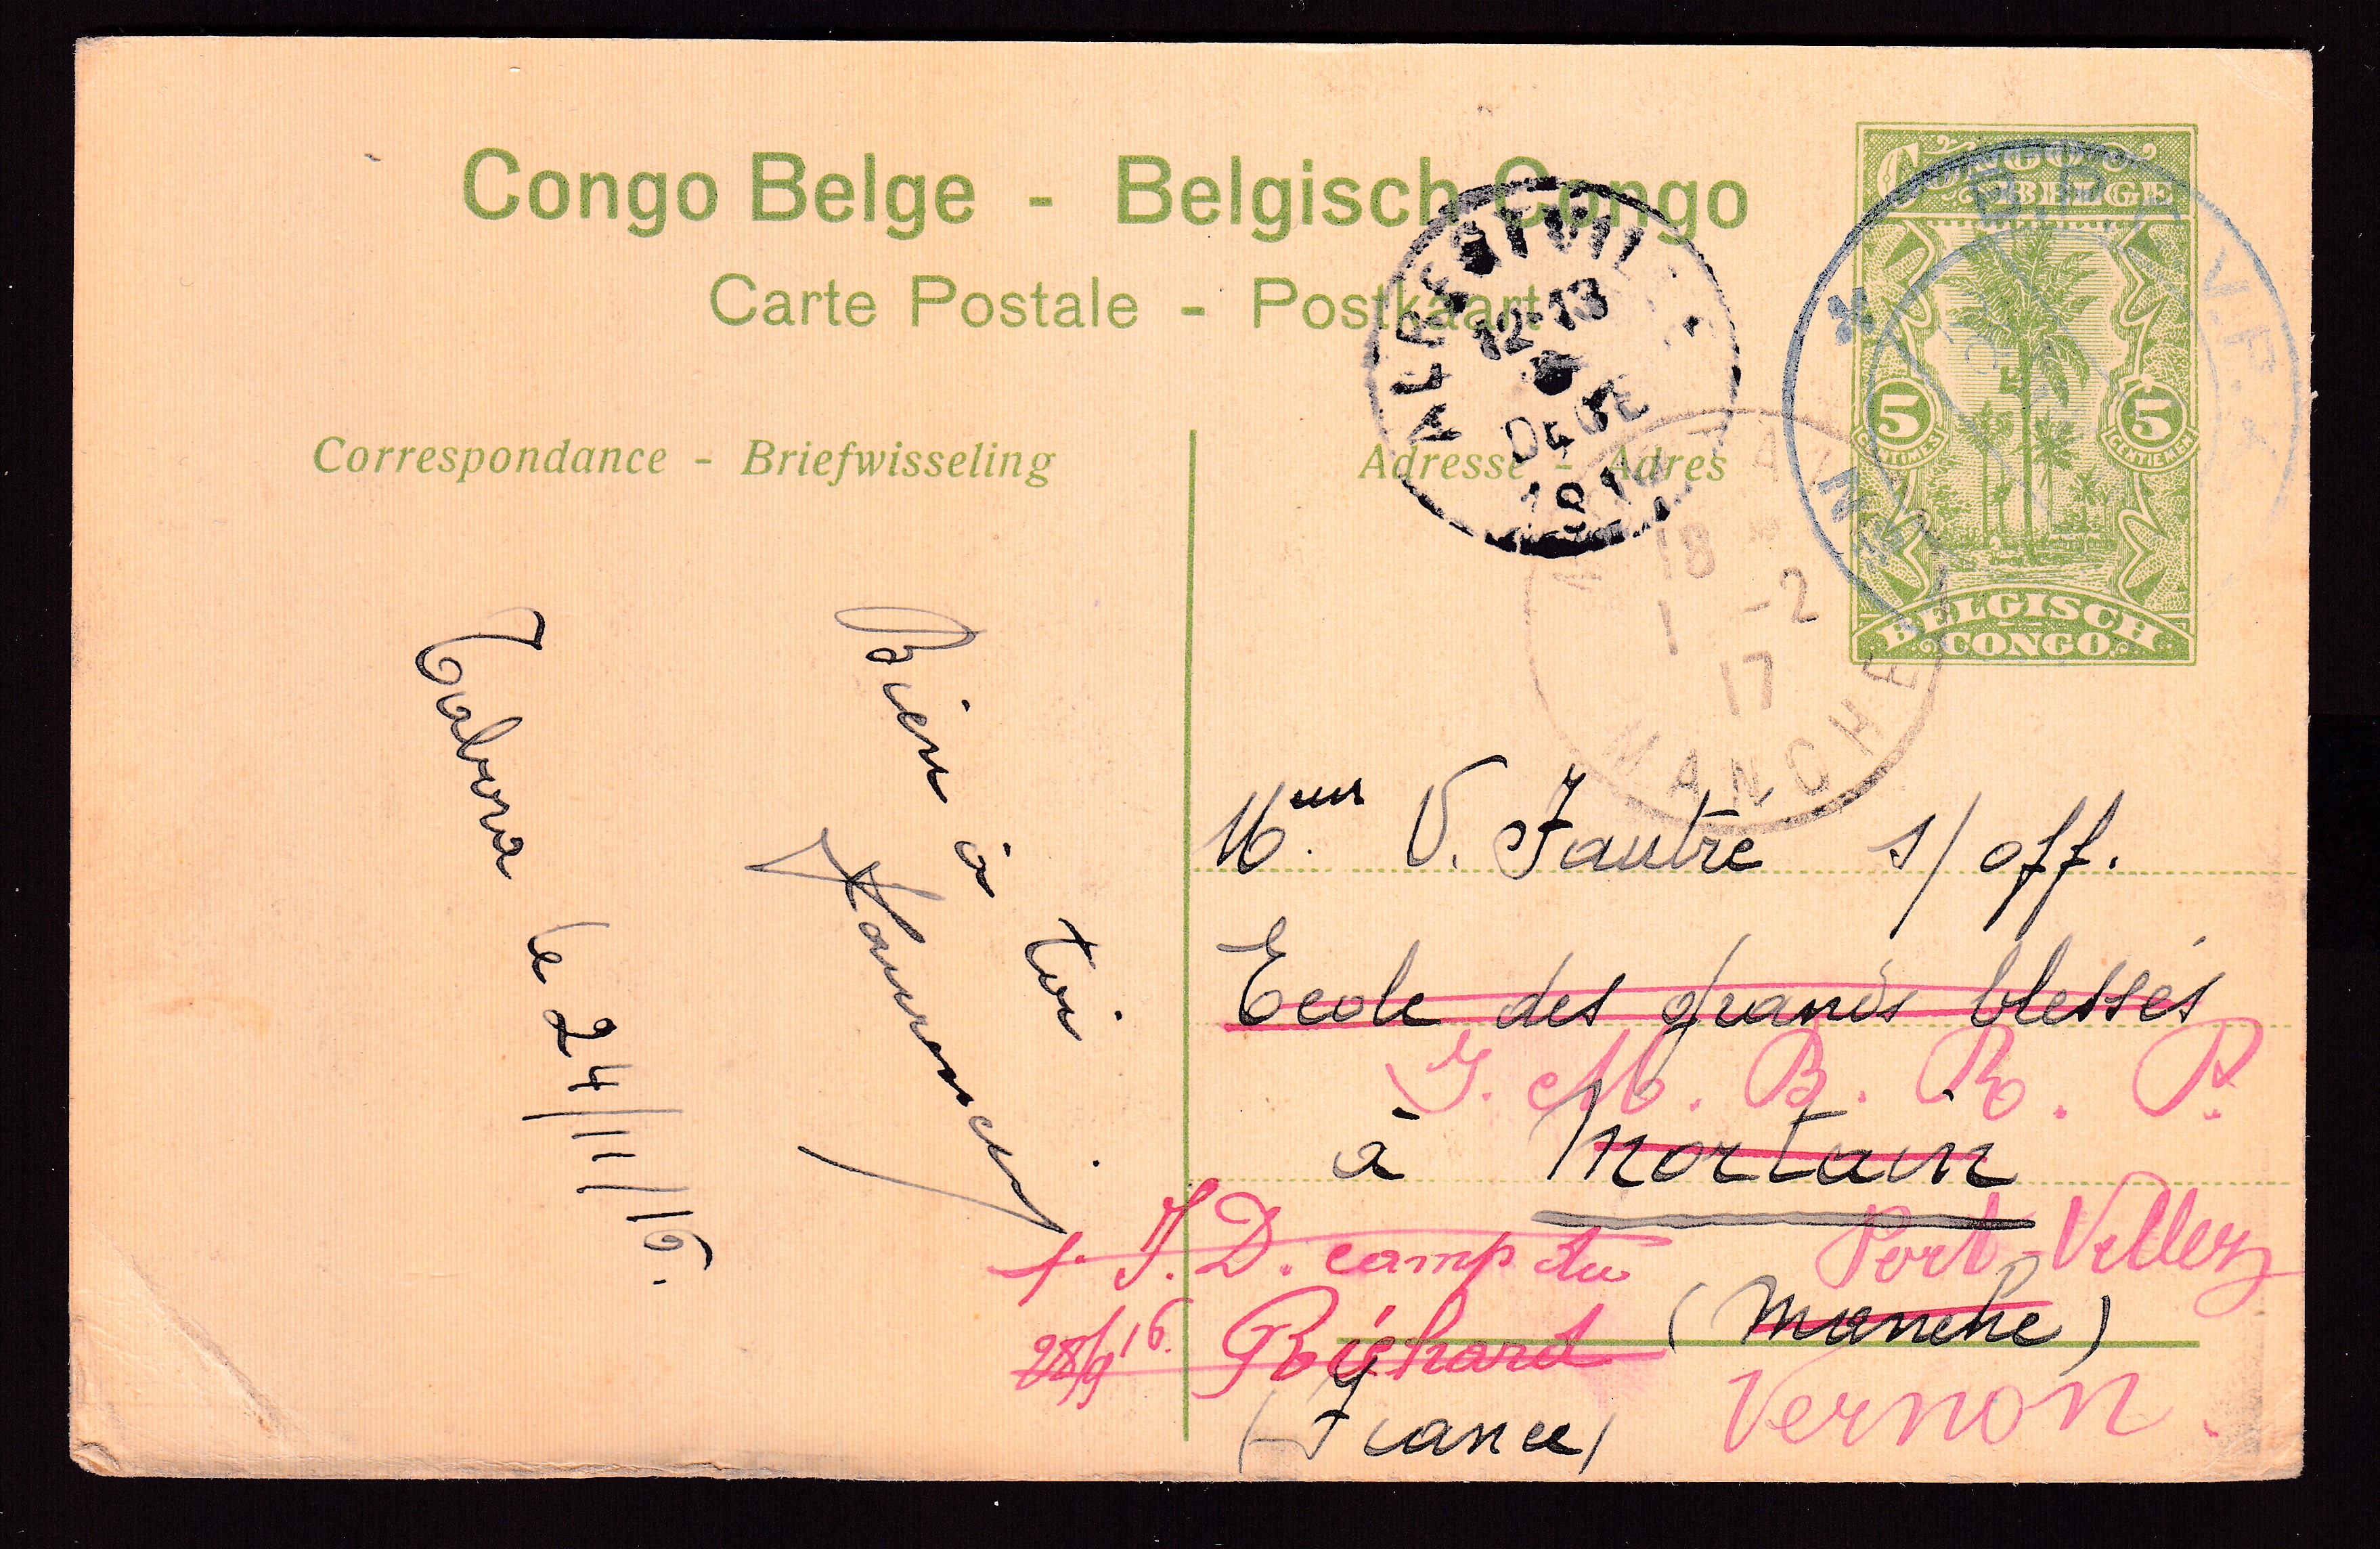 Congo Belge - Belgisch Congo
Carte Postale - Postkaart
CONGO
BELGE
5
5
CENTIEMEN
BELGISCH
CONGO
B.P.C.V.P.K.
12-13
DECE
MORTAIN
18
1 -2
17
MANCHE
Correspondance - Briefwisseling
Adresse - Adres
Bien à toi
Tabora le 24/11/16.
V. Fautre s/off.
Ecole des grands blessés
I. M. B. R. P.
à Mortain
Port-Villez
f. J. D. camp du
(Manche)
28/9 16.
(France)
Vernon.